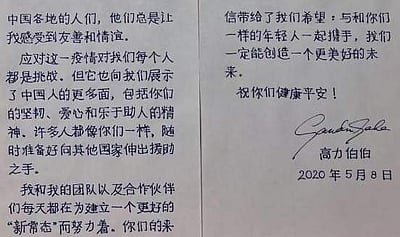 中国各地的人们，他们总是让
我感受到友善和情谊。
应对这一疫情对我们每个人
都是挑战。但它也向我们展示
了中国人的更多面，包括你们
的坚韧、爱心和乐于助人的精
神。许多人都像你们一样，随
时准备好向其他国家伸出援助
之手。
我和我的团队以及合作伙伴
们每天都在为建立一个更好的
“新常态”而努力着。你们的来
信带给了我们希望：与和你们
一样的年轻人一起携手，我们
一定能创造一个更美好的未
来。
祝你们健康平安！
高力伯伯
2020年5月8日